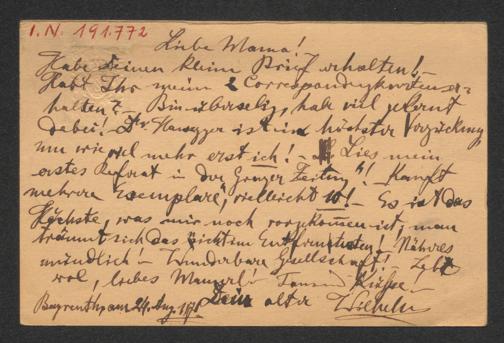 I.N. 191.772
Liebe Mama!
Habe Deinen kleinen Brief erhalten! –
Habt Ihr meine 2 Correspondenzkarten er-
halten? – Bin überselig, hab viel gelernt
dabei! Dr Hausegger ist in höchster Verzückung
um wie viel mehr erst ich! – Lies mein
erstes Referat in der "Grazer Zeitung"! Kauft
mehrere Exemplare, vielleicht 10! – Es ist das
Höchste, was mir noch vorgekom̅en ist, man
träumt sich das nicht im Entferntesten! – Näheres
mündlich! – Wunderbare Gesellschaft! Lebt
wol, liebes Mamerl! Tausend Küsse!
Bayreuth, am 24. Aug. Dein alter Wilhelm